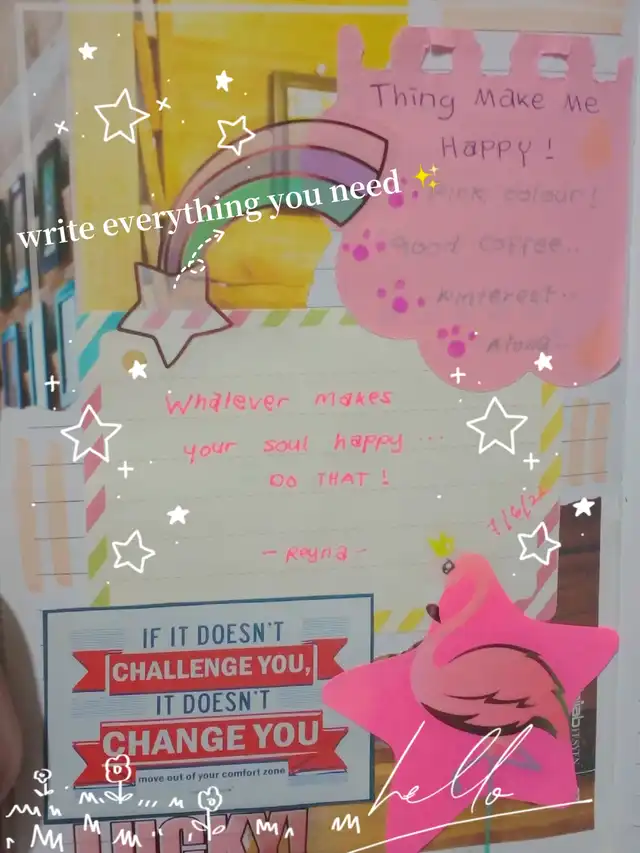 Thing Make Me
Happy!
Pink colour!
Good coffee..
Pinterest..
write everything you need ✨
Whatever makes
your soul happy...
DO THAT!
- Reyna -
IF IT DOESN'T
CHALLENGE YOU,
IT DOESN'T
CHANGE YOU
move out of your comfort zone
hello
LUCKY